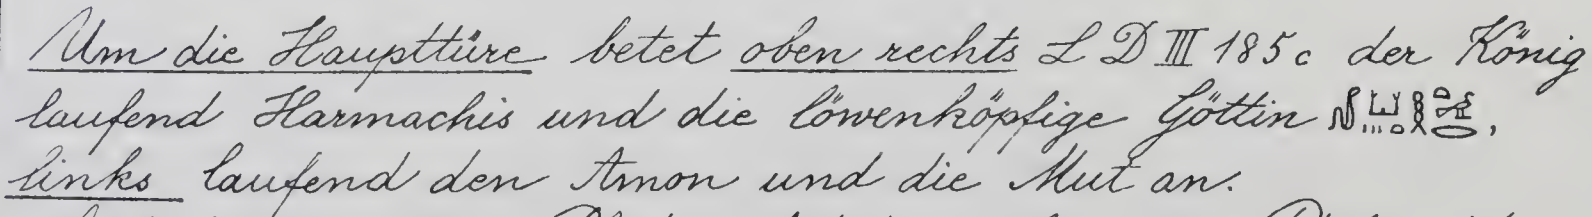 Um die Haupttüre betet oben rechts L D III 185 c der König
laufend Harmachis und die löwenköpfige Göttin
links laufend den Amon und die Mut an.